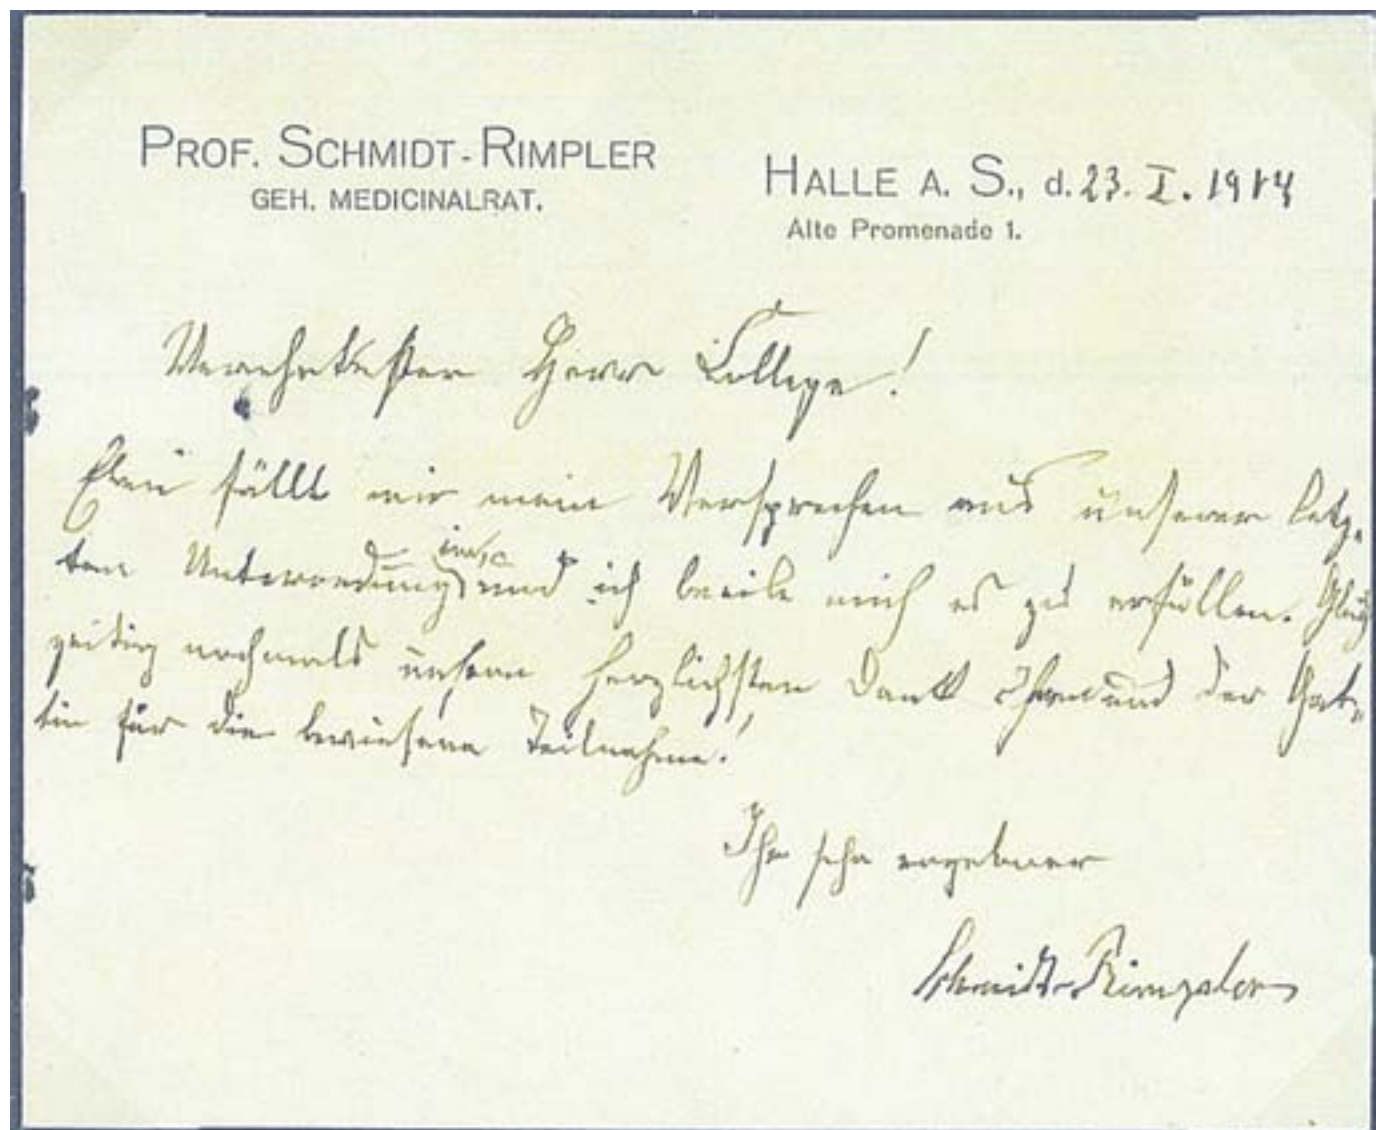 PROF. SCHMIDT-RIMPLER
GEH. MEDICINALRAT.
HALLE A. S., d. 23. I. 1914
Alte Promenade 1.
Verehrtester Herr College!
fällt mir mein Versprechen aus unserer letz-
ten Unterredung und ich beeile mich es zu erfüllen. Gleich
zeitig nochmals unsern herzlichsten Dank Ihnen und der Gat-
tin für die bewiesene Teilnahme!
Ihr sehr ergebener
Schmidt-Rimpler